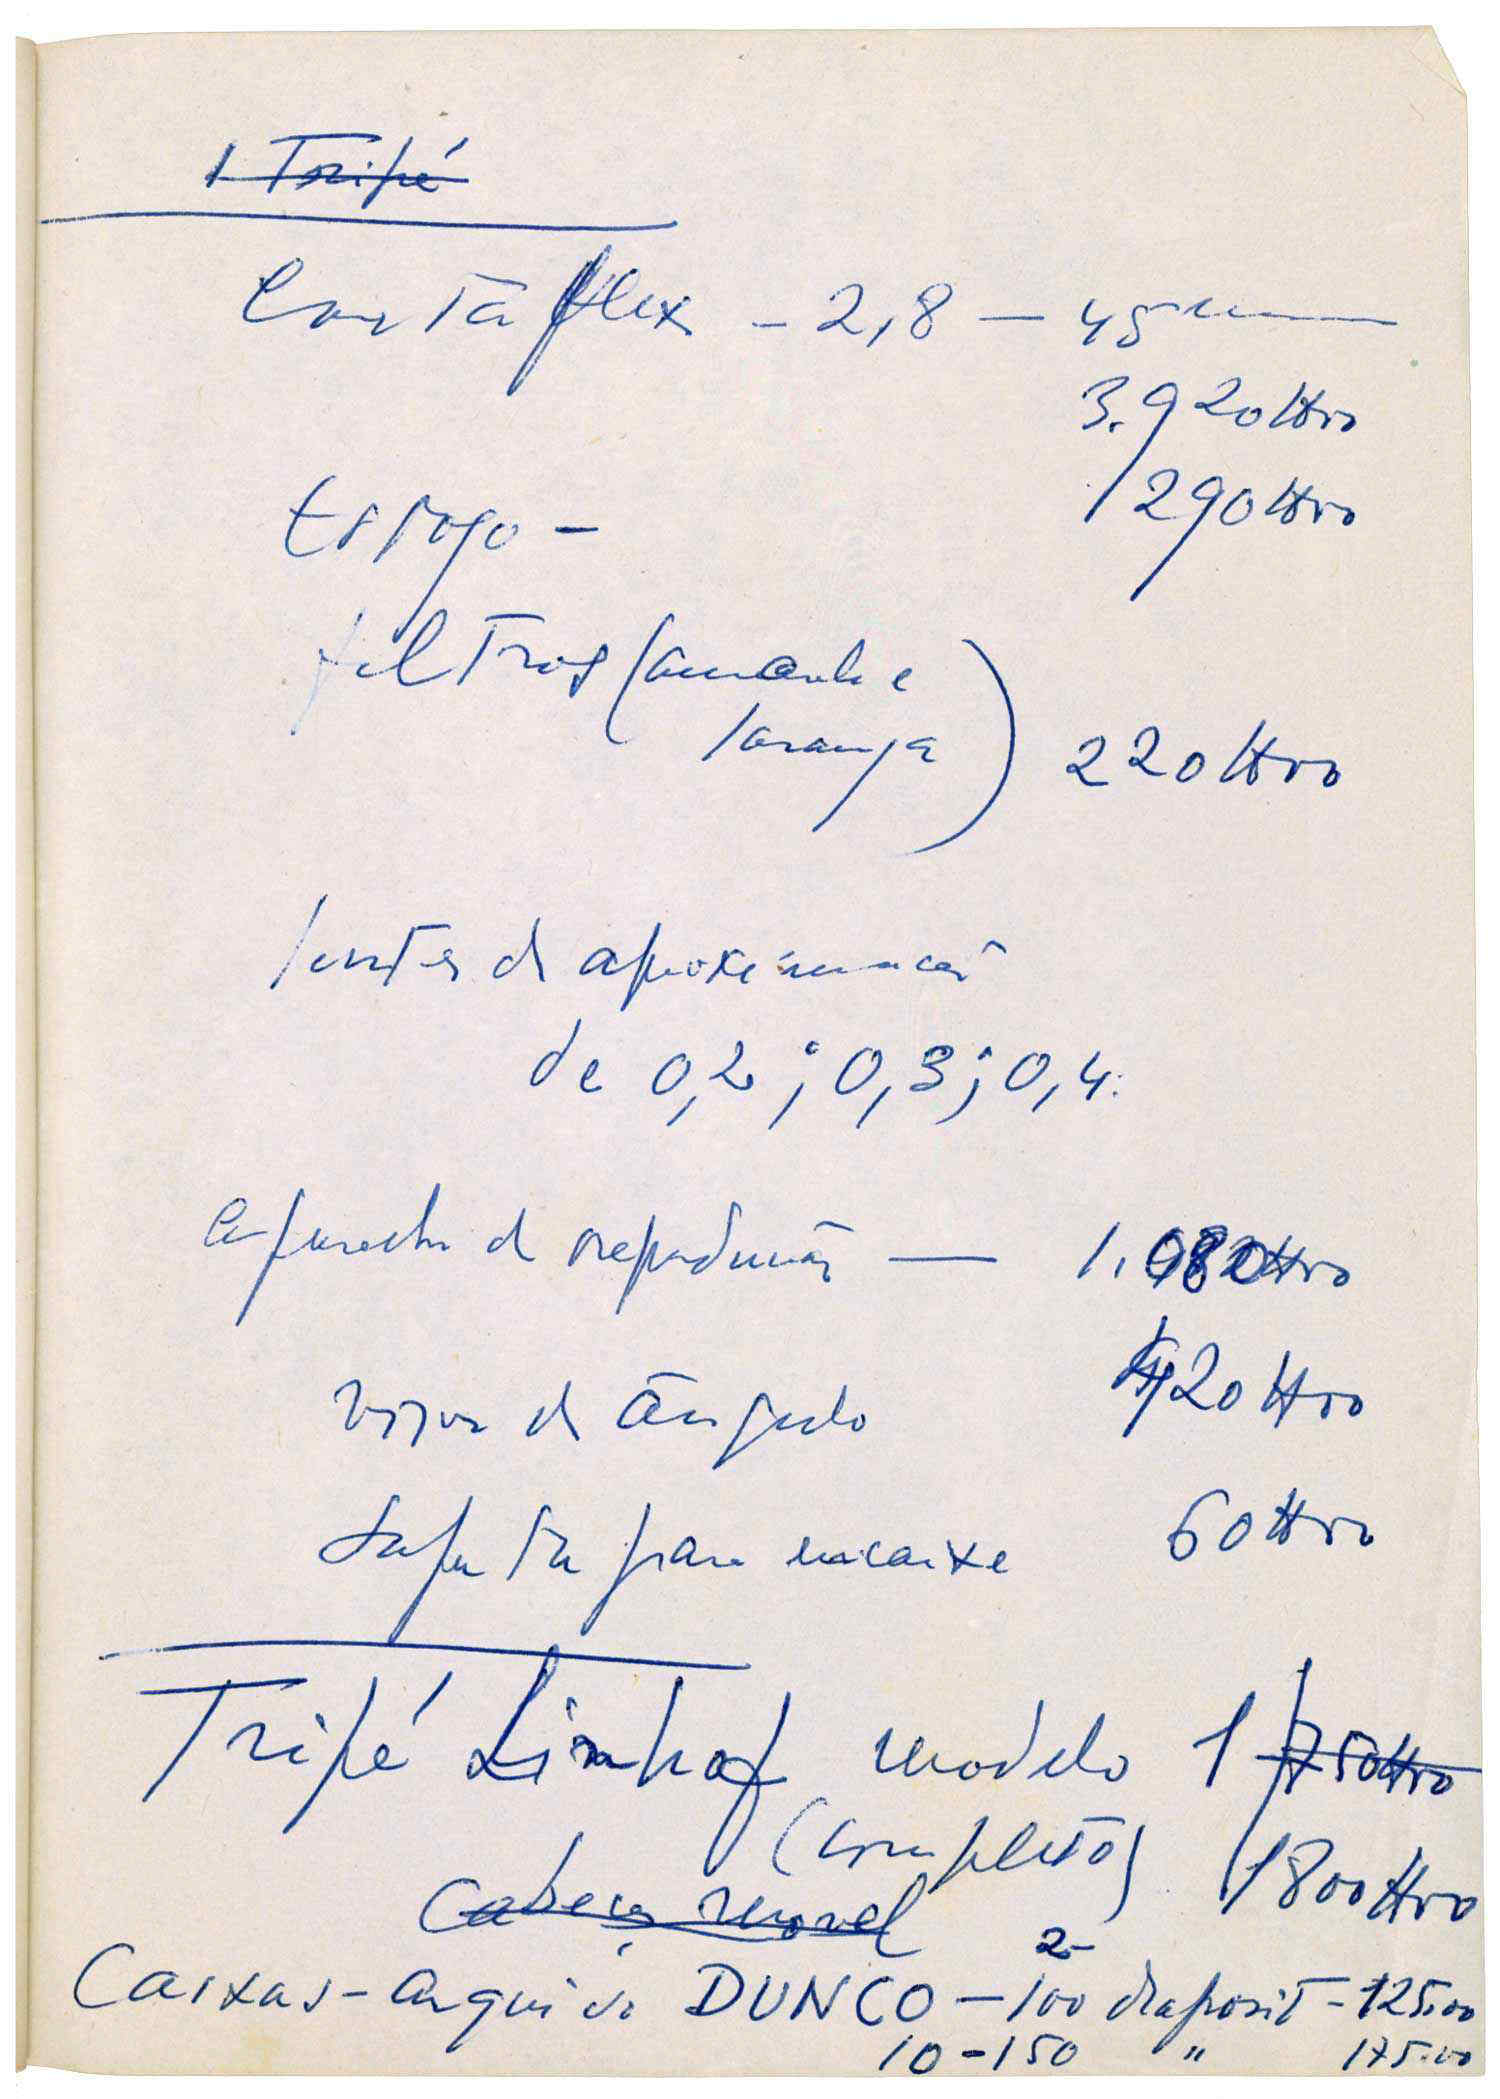 1 Tripé
Contaflex - 2,8 - 45mm
3.920$00
Estojo - 290$00
filtros (amarelo e
laranja) 220$00
lentes de aproximação
de 0,2; 0,3; 0,4.
aparelho de reprodução — 1.080$00
visor de ângulo 420$00
sapata para encaixe 60$00
Tripé Linhof modelo 1 750$00
(completo) 1800$00
Cabeça movel
2-
Caixas-arquivo DUNCO - 100 diaposit - 125.00
10 - 150 " 175.00